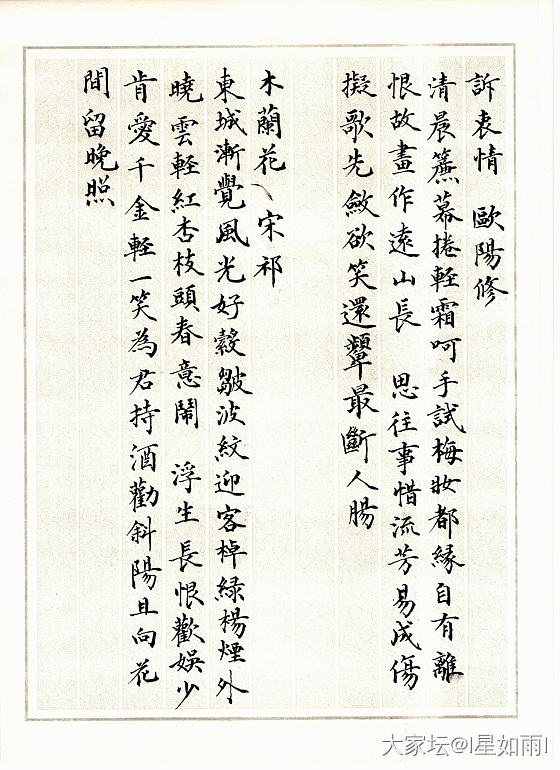 訴衷情 歐陽修
清晨簾幕捲輕霜呵手試梅妝都緣自有離
恨故畫作遠山長 思往事惜流芳易成傷
擬歌先斂欲笑還顰最斷人腸
木蘭花 宋祁
東城漸覺風光好縠皺波紋迎客棹綠楊煙外
曉雲輕紅杏枝頭春意鬧 浮生長恨歡娛少
肯愛千金輕一笑為君持酒勸斜陽且向花
間留晚照
大家坛@I星如雨I